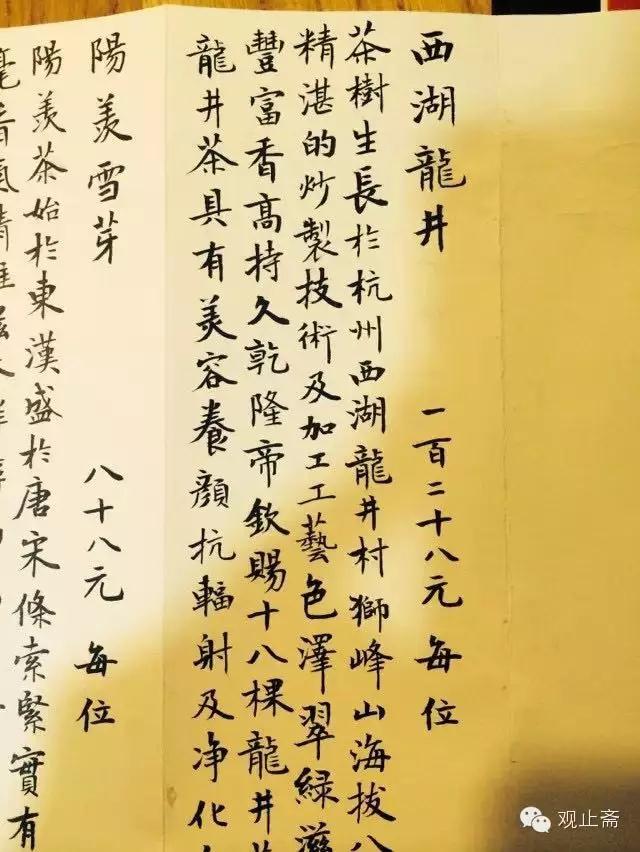 西湖龍井 一百二十八元 每位
茶樹生長於杭州西湖龍井村獅峰山海拔八
精湛的炒製技術及加工工藝色澤翠綠滋
豐富香高持久乾隆帝欽賜十八棵龍井
龍井茶具有美容養顏抗輻射及净化
陽羨雪芽 八十八元 每位
陽羨茶始於東漢盛於唐宋條索緊實有
毫香氣清雅滋
观止斋